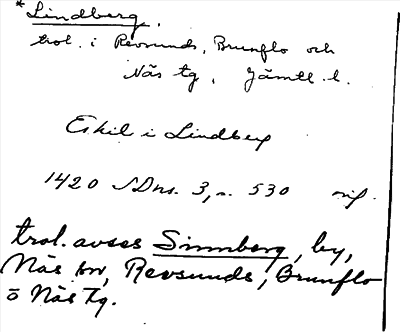 * Lindberg.
trol. i Revsunds, Brunflo och
Näs tg, Jämtl. l.
Eskil i Lindberg
1420 SDns. 3, s. 530
trol. avses Sinnberg, by,
Näs sn, Revsunds, Brunflo
o Näs tg.